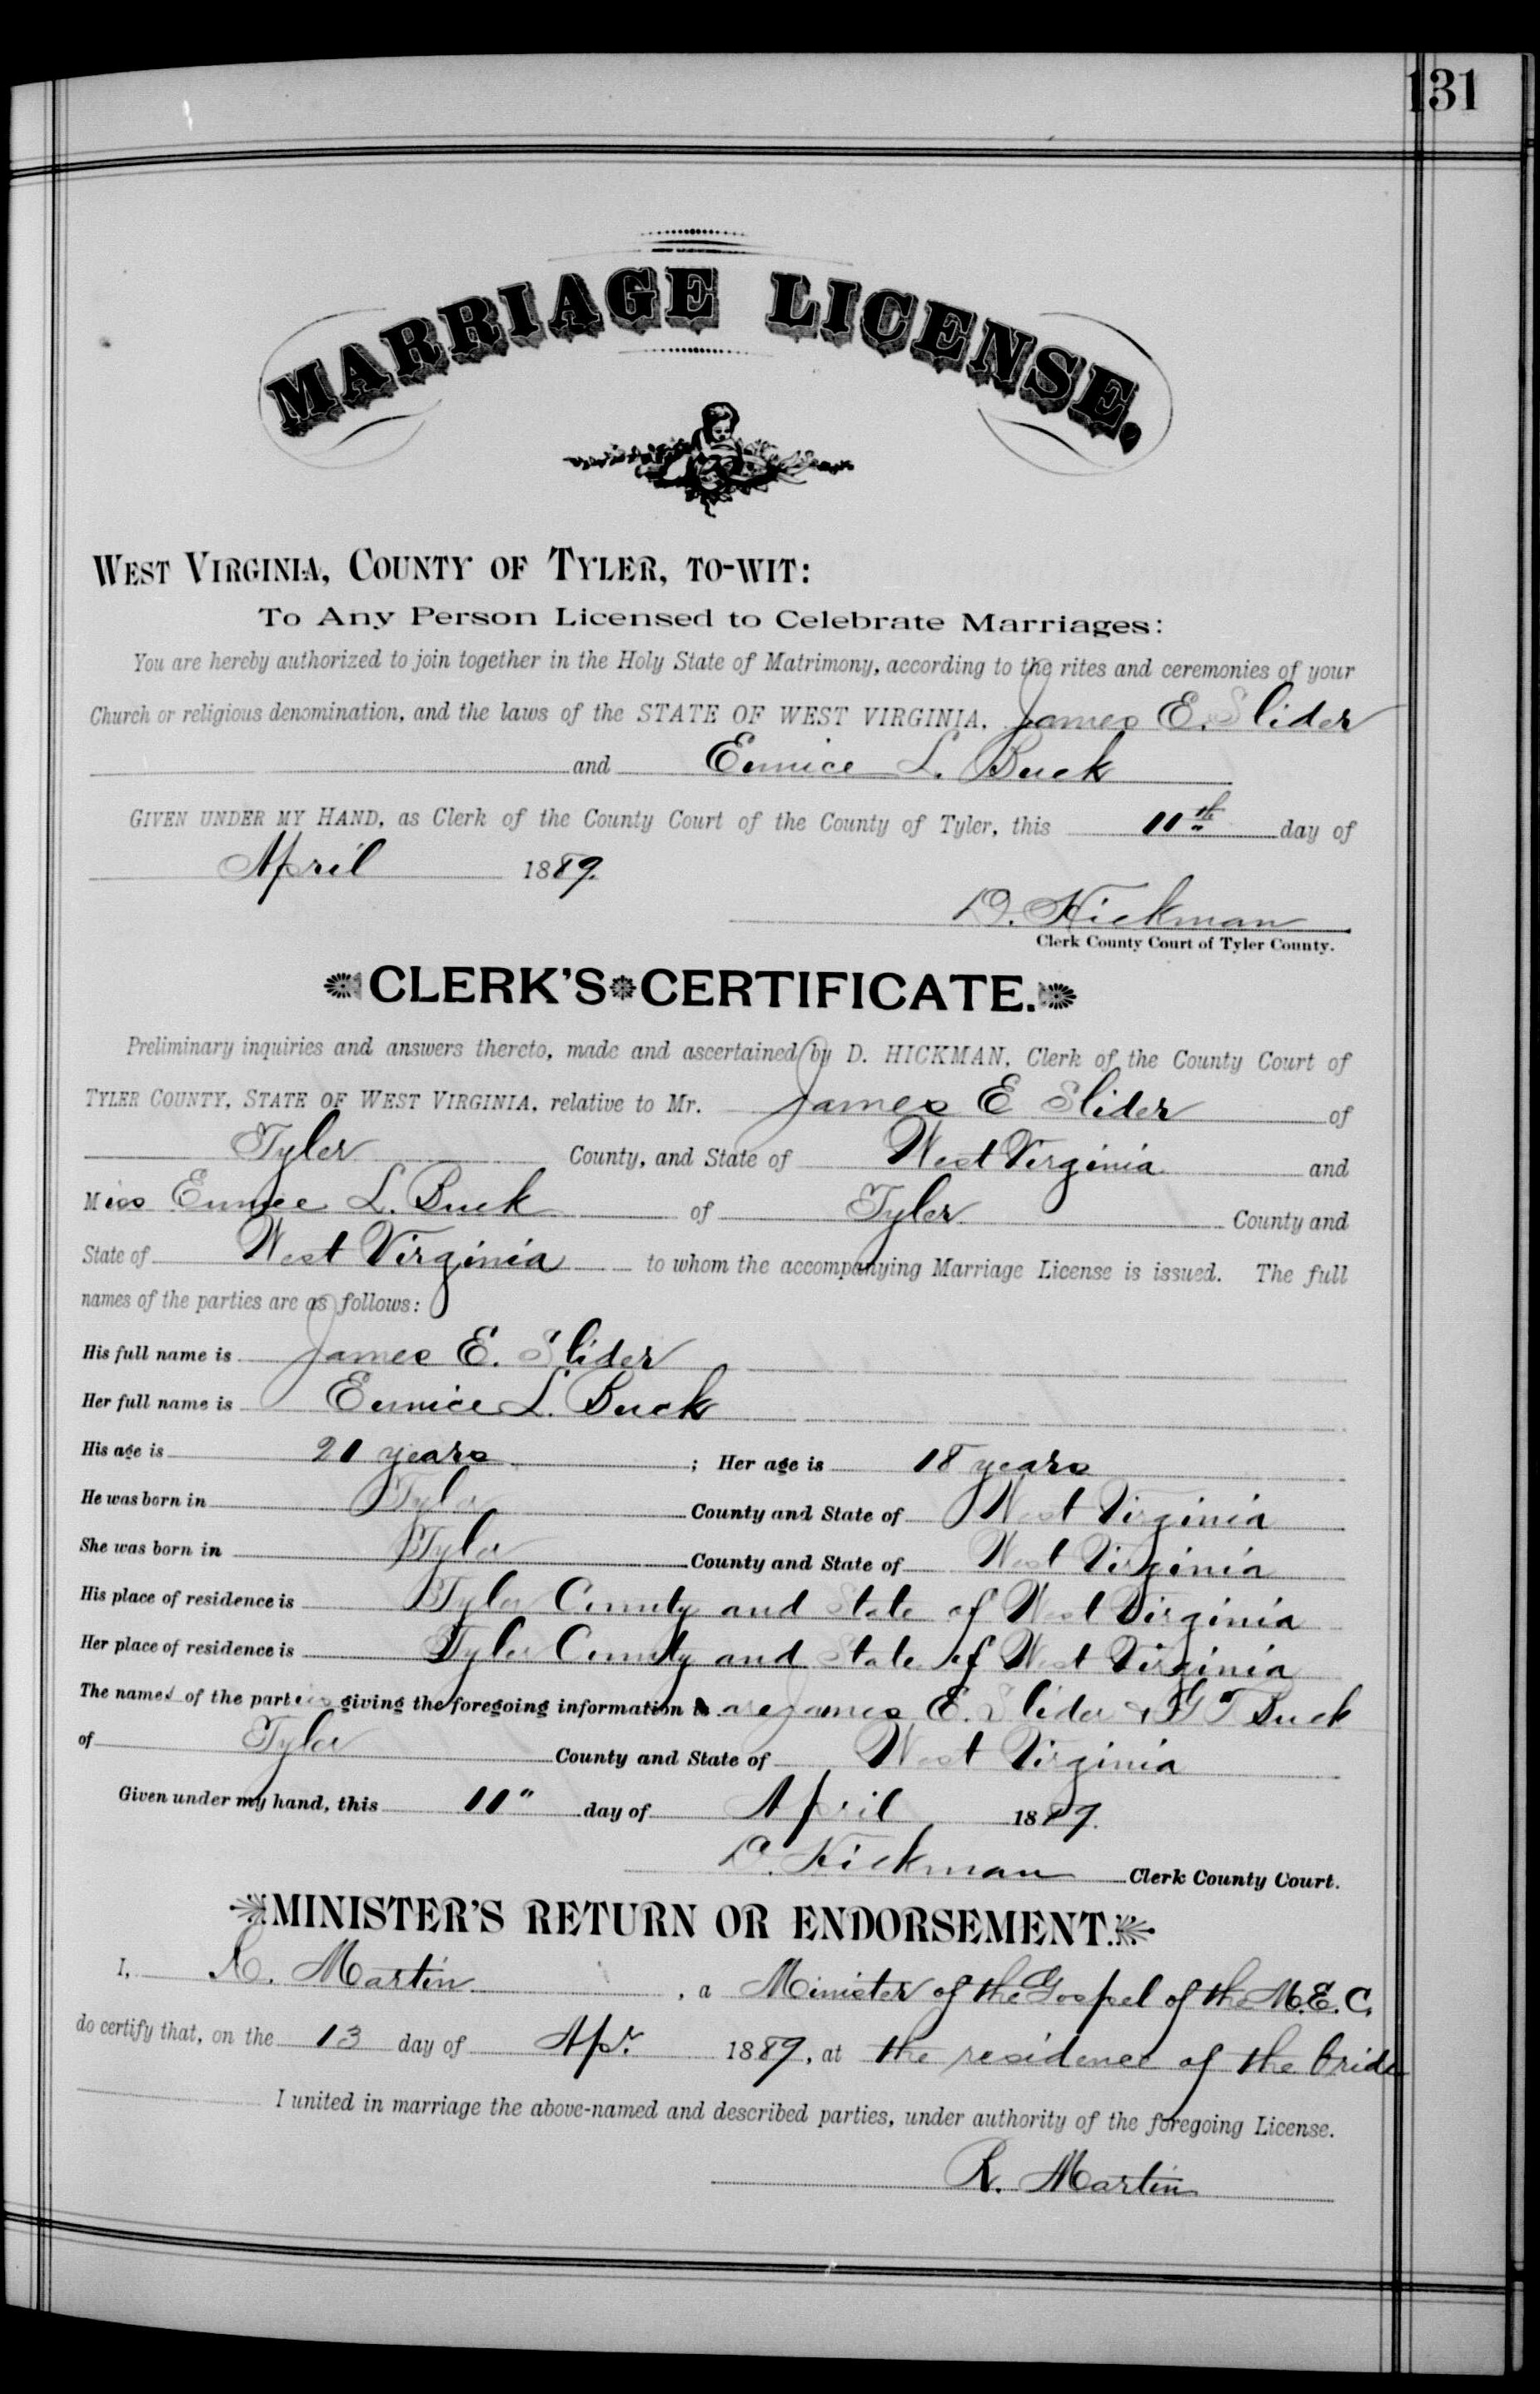 131
MARRIAGE LICENSE.
WEST VIRGINIA, COUNTY OF TYLER, TO-WIT:
To Any Person Licensed to Celebrate Marriages:
You are hereby authorized to join together in the Holy State of Matrimony, according to the rites and ceremonies of your
Church or religious denomination, and the laws of the STATE OF WEST VIRGINIA, James E. Slider
and Eunice L. Buck
GIVEN UNDER MY HAND, as Clerk of the County Court of the County of Tyler, this 11th day of
April 1889.
D. Hickman
Clerk County Court of Tyler County.
CLERK'S CERTIFICATE.
Preliminary inquiries and answers thereto, made and ascertained by D. HICKMAN, Clerk of the County Court of
TYLER COUNTY, STATE OF WEST VIRGINIA, relative to Mr. James E Slider of
Tyler County, and State of West Virginia and
Miss Eunice L. Buck of Tyler County and
State of West Virginia to whom the accompanying Marriage License is issued. The full
names of the parties are as follows:
His full name is James E. Slider
Her full name is Eunice L. Buck
His age is 21 years ; Her age is 18 years
He was born in Tyler County and State of West Virginia
She was born in Tyler County and State of West Virginia
His place of residence is Tyler County and State of West Virginia
Her place of residence is Tyler County and State of West Virginia
The names of the parties giving the foregoing information are James E. Slider & T Buck
of Tyler County and State of West Virginia
Given under my hand, this 11" day of April 1889.
D. Hickman Clerk County Court.
MINISTER'S RETURN OR ENDORSEMENT.
I, R. Martin , a Minister of the Gospel of the M.E.C.
do certify that, on the 13 day of Apr. 1889, at the residence of the bride
I united in marriage the above-named and described parties, under authority of the foregoing License.
R. Martin